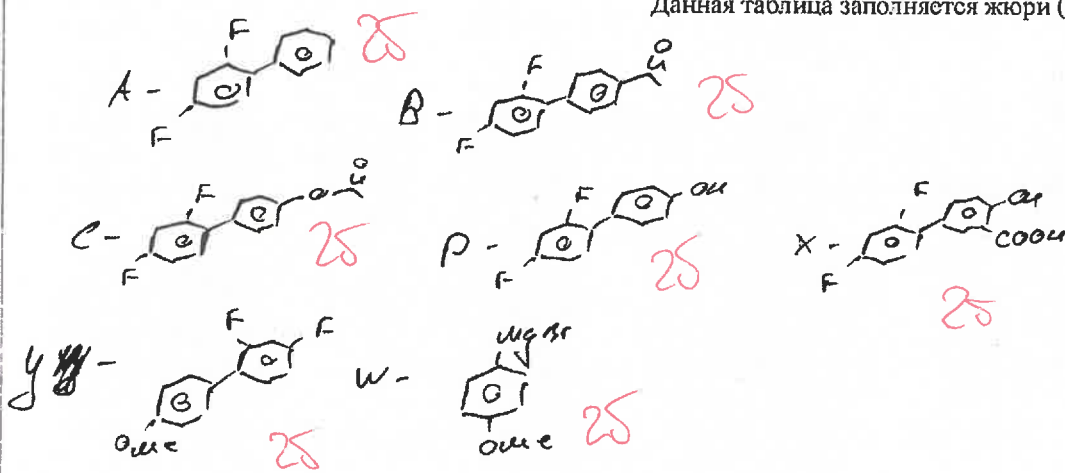 Данная таблица заполняется жюри (
A - F F 2б
B - F F O 2б
C - F F O O 2б
D - F F OH 2б
X - F F OH COOH 2б
Y - F F OMe 2б
W - MgBr OMe 2б